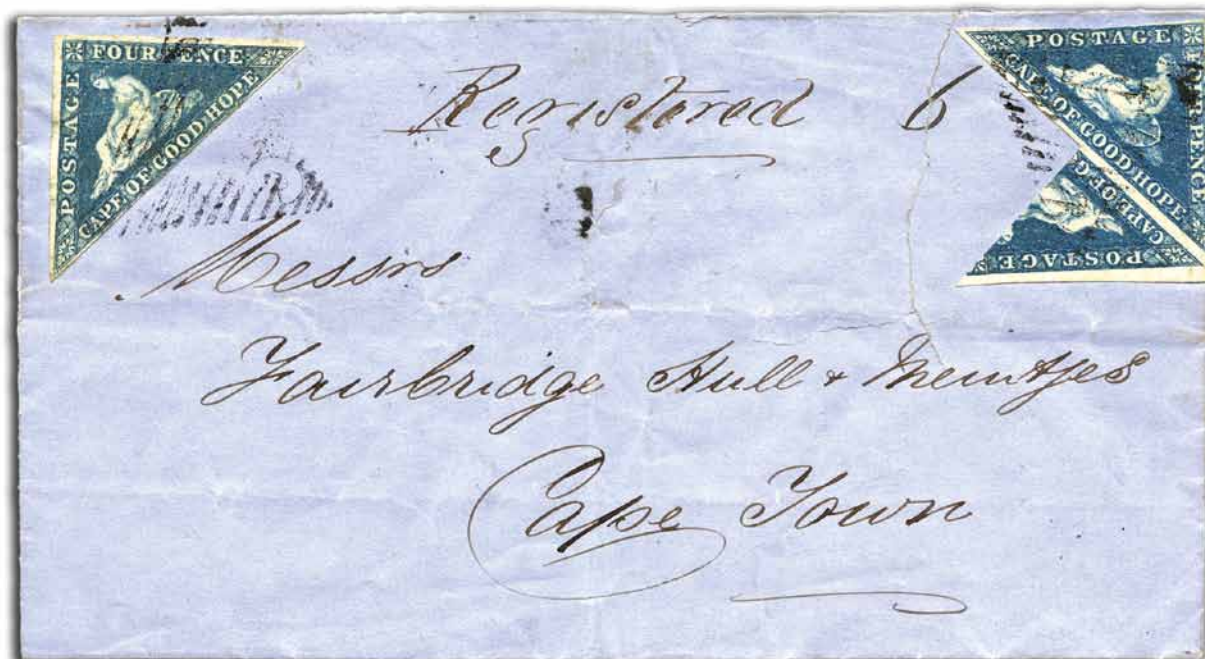 POSTAGE
FOUR PENCE
CAPE OF GOOD HOPE
Registered 6
POSTAGE
FOUR PENCE
CAPE OF GOOD HOPE
CAPE OF G
POSTAGE
Messrs
Fairbridge Hull & Meintjes
Cape Town